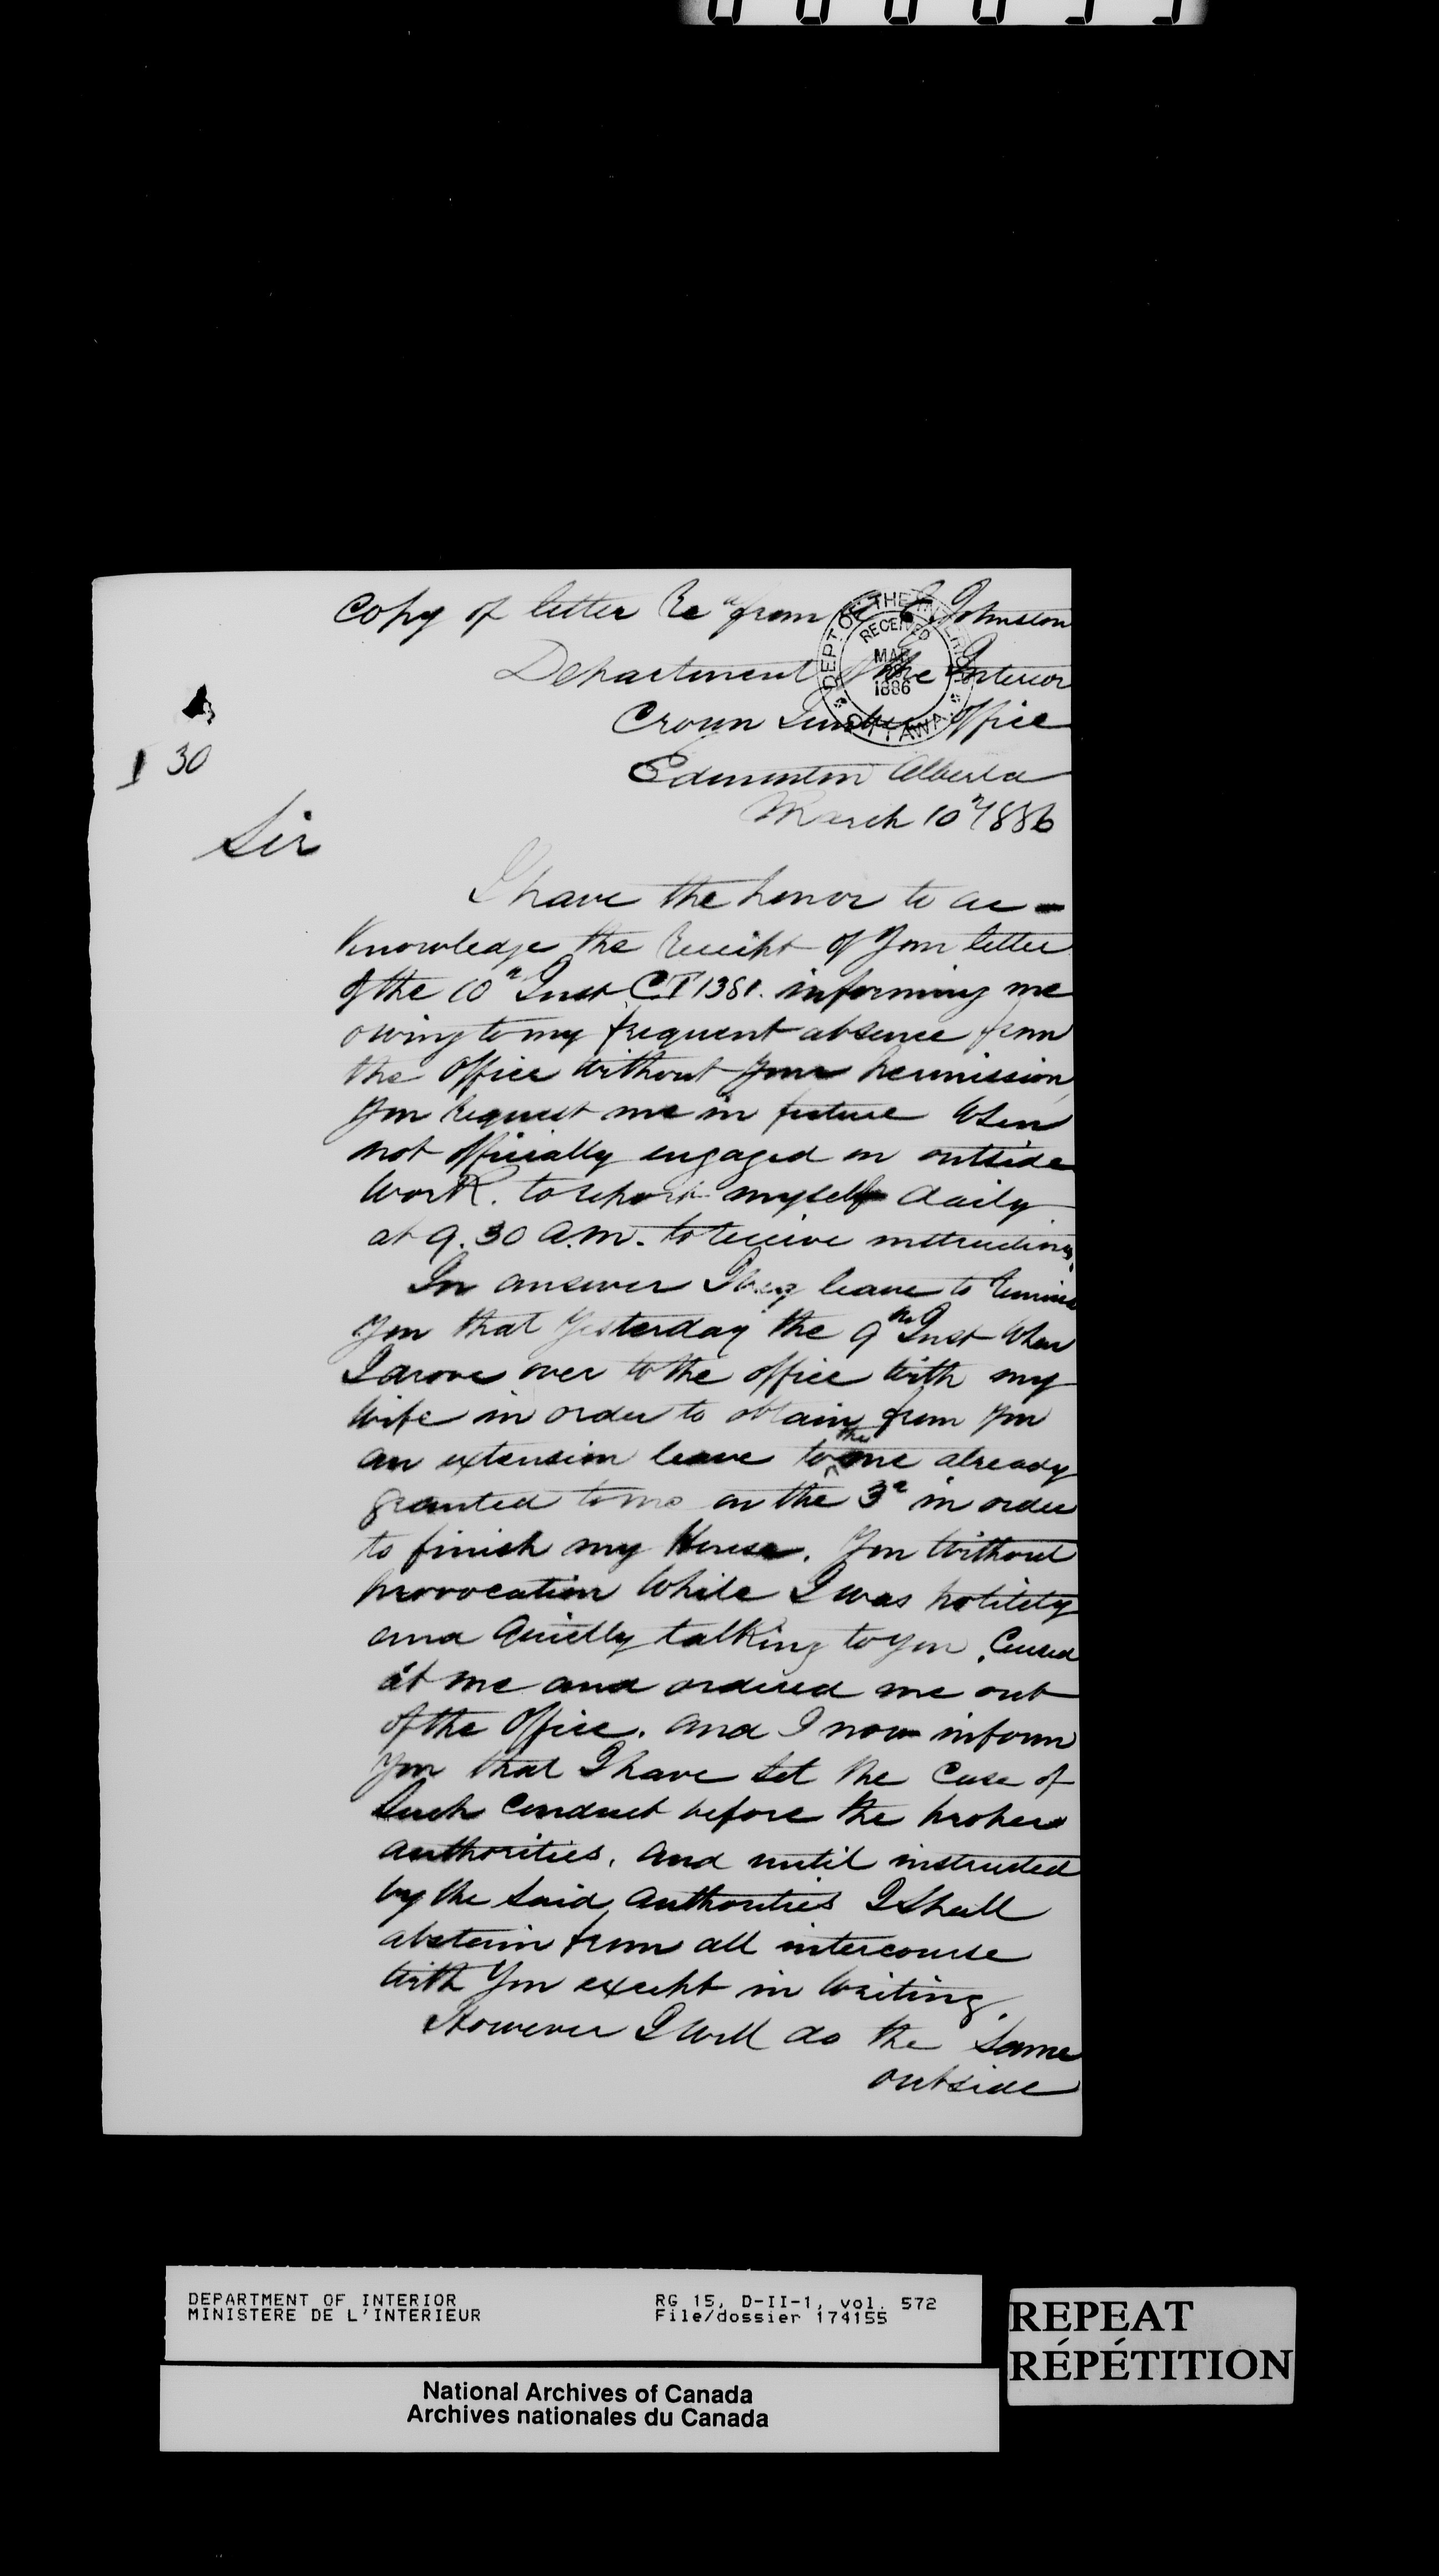 Copy of letter Re^d from Johnston
Department of the Interior
Crown Timber Office
Edmonton Alberta
March 10th 1886
DEPT OF THE INTERIOR
RECEIVED
MAR
1886
OTTAWA
30
Sir
I have the honor to ac-
knowledge the receipt of your letter
of the 10th Inst C.T 1381. informing me
owing to my frequent absence from
the office without your permission
you request me in future when
not officially engaged on outside
work. to report myself daily
at 9.30 a.m. to receive instructions.
In answer I beg leave to remind
you that yesterday the 9th Inst when
I drove over to the office with my
wife in order to obtain from you
an extension leave to the one already
granted to me on the 3d in order
to finish my House. You without
provocation while I was politely
and quietly talking to you. Cursed
at me and ordered me out
of the office. and I now inform
you that I have set the case of
such conduct before the proper
authorities. and until instructed
by the said authorities I shall
abstain from all intercourse
with you except in writing.
However I will do the same
outside
DEPARTMENT OF INTERIOR
MINISTERE DE L'INTERIEUR
RG 15, D-II-1, vol. 572
File/dossier 174155
REPEAT
RÉPÉTITION
National Archives of Canada
Archives nationales du Canada